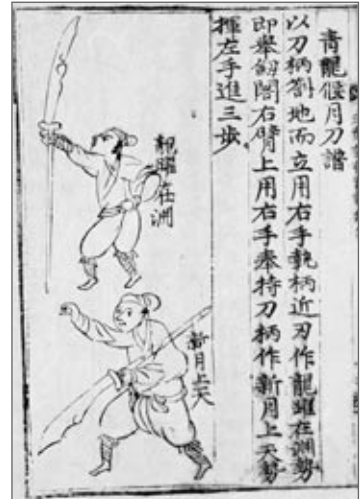 青龍偃月刀譜
以刀柄劄地而立用右手執柄近刃作龍躍在淵勢
即舉劒閣右臂上用右手奉持刀柄作新月上天勢
揮左手進三步
龍躍在淵
新月上天